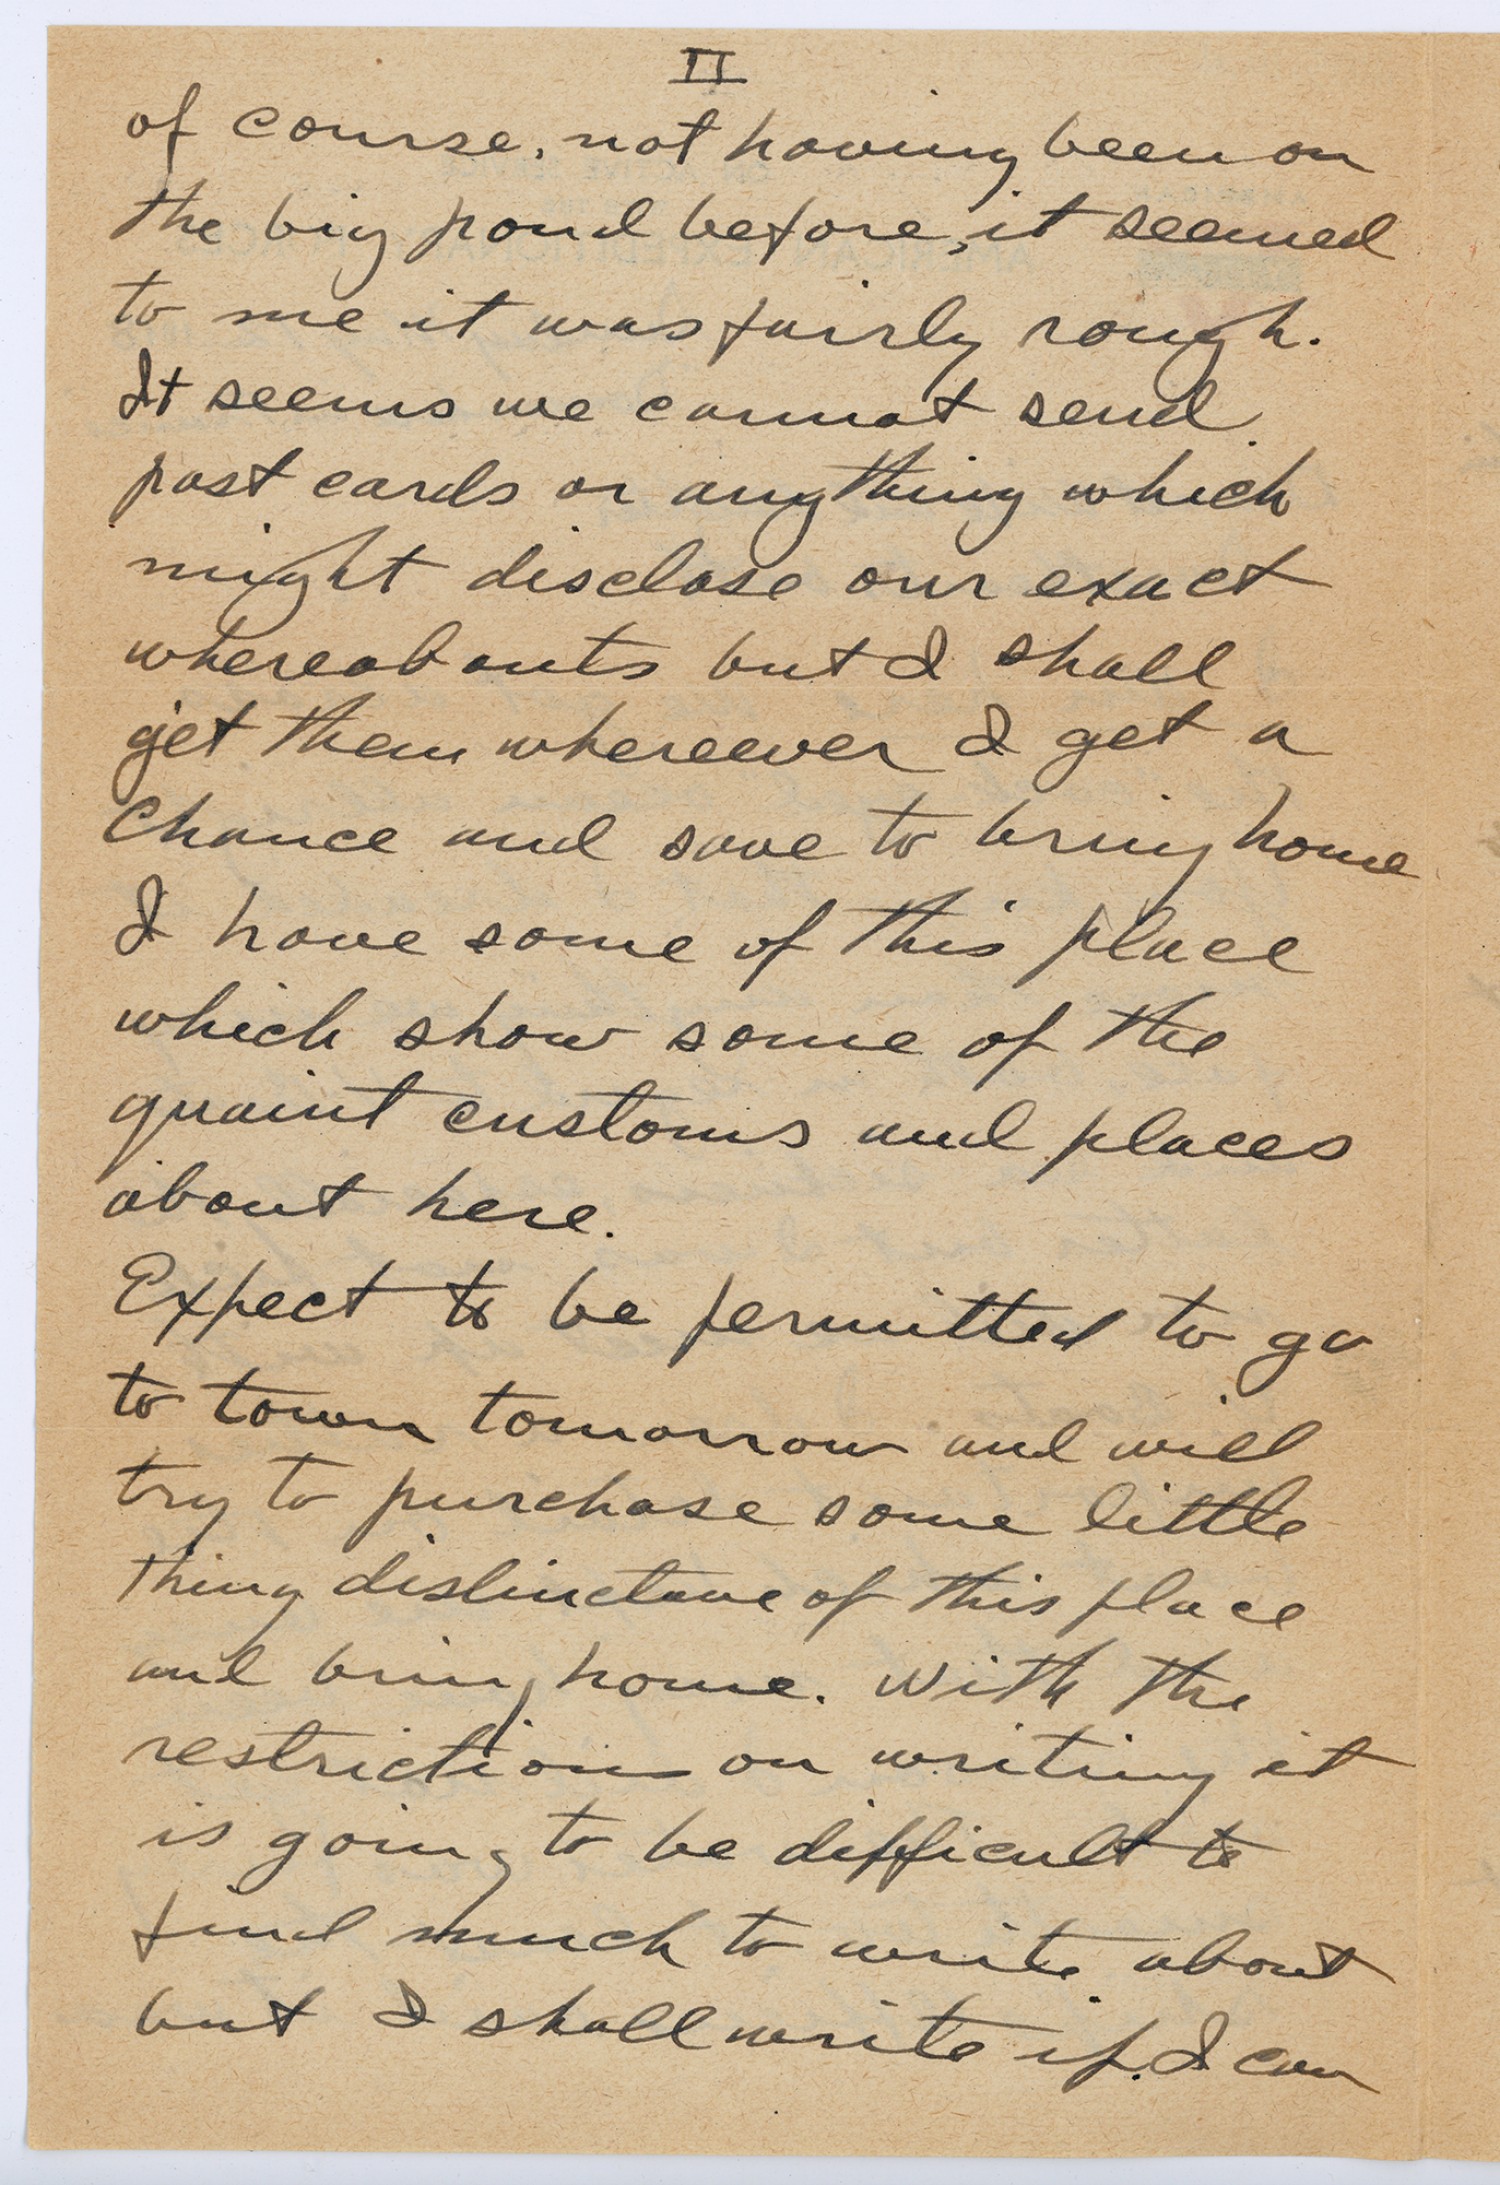 II
of course, not having been on
the big pond before, it seemed
to me it was fairly rough.
It seems we cannot send
post cards or anything which
might disclose our exact
whereabouts but I shall
get them whereever I get a
chance and save to bring home
I have some of this place
which show some of the
quaint customs and places
about here.
Expect to be permitted to go
to town tomorrow and will
try to purchase some little
thing distinctive of this place
and bring home. With the
restrictions on writing it
is going to be difficult to
find much to write about
but I shall write if I can